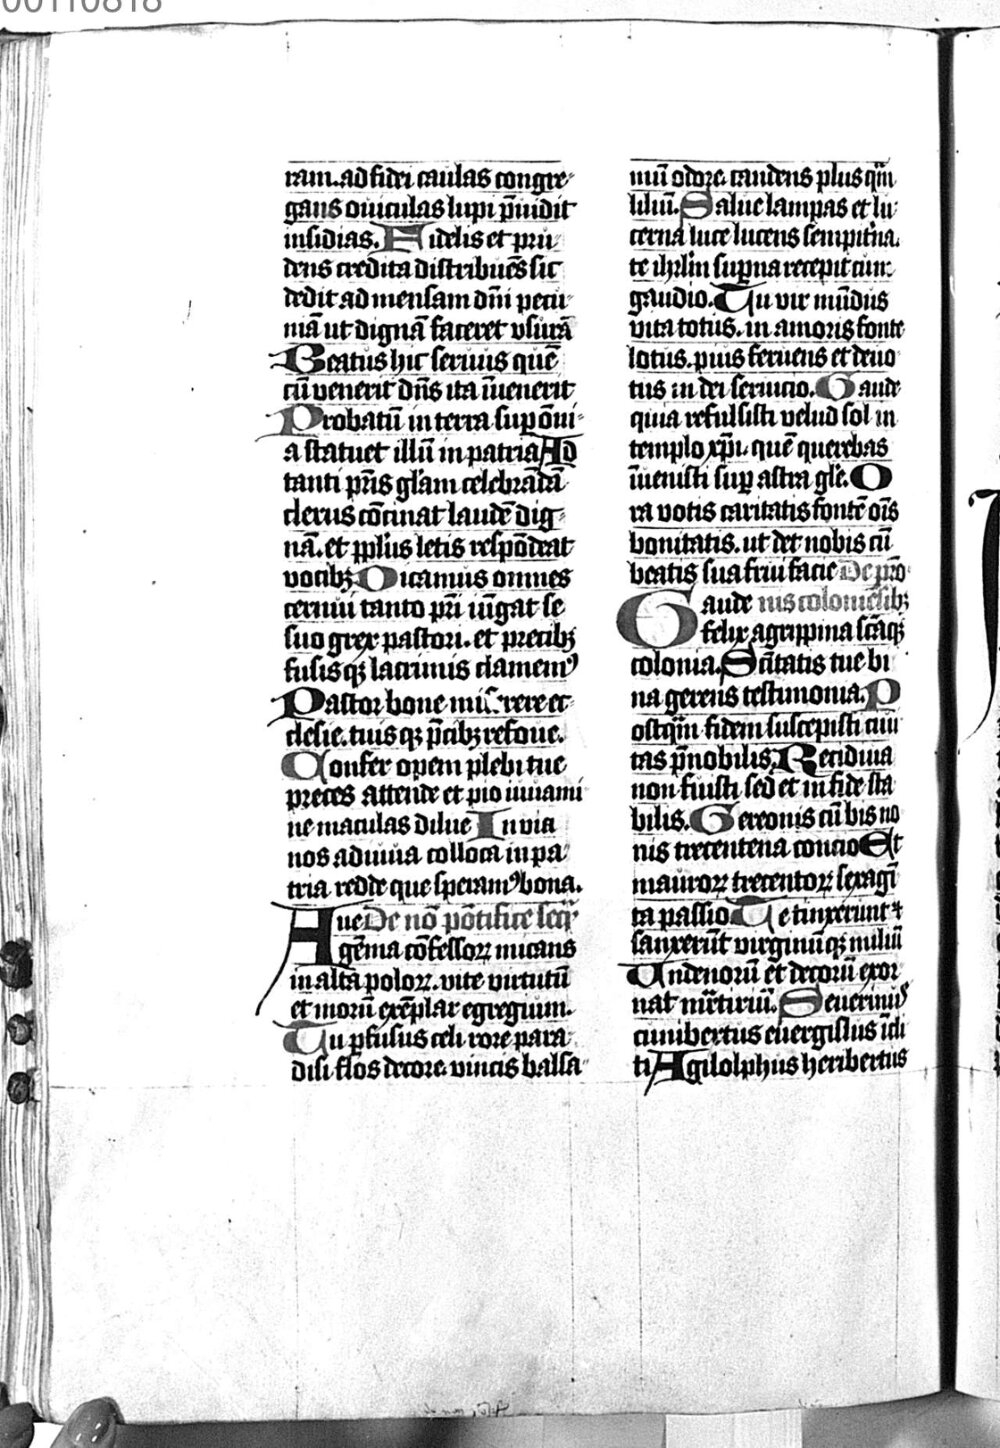 00110818
ram. ad fidei caulas congre-
gans ouiculas lupi p̄uidit
insidias. Fidelis et pru-
dens credita distribuēs sic
dedit ad mensam dn̄i pecu-
niā ut dignā faceret vsurā
Beatus hic seruus quē
cū venerit dn̄s ita īuenerit
Probatū in terra sup om̄i-
a statuet illū in patria Ad
tanti pr̄is gl̄am celebrādā
clerus cōcinat laudē dig-
nā. et pplūs letis respōdeat
vocibꝫ Dicamus omnes
cernui tanto pr̄i iūgat se
suo grex pastori. et precibꝫ
fusis qꝫ lacrimis clamemꝰ
Pastor bone miserere ec-
clesie. tuis qꝫ p̄cibꝫ refoue.
Confer opem plebi tue
preces attende et pio iuuami
ne maculas dilue In via
nos adiuua colloca in pa-
tria redde que speramꝰ bona.
Aue De nō pōtifice seq̄
gēma cōfessoꝝ micans
in alta poloꝝ. vite virtutū
et morū exēplar egregium.
Tu pfusus celi rore para-
disi flos decore. vincis balsa-
mū odore. candens plus qm̄
liliū. Salue lampas et lu-
cerna luce lucens sempit̄na.
te ihrl̄m sup̄na recepit cum
gaudio. Tu vir mūdus
vita totus. in amoris fonte
lotus. pius feruens et deuo
tus in dei seruicio. Gaude
quia refulsisti velud sol in
templo xp̄i. quē querebas
īuenisti sup astra gl̄e. O
ra votis caritatis fontē oīs
bonitatis. ut det nobis cū
beatis sua frui facie De pr̄o
Gaude nis coloniēsibꝫ
felix agrippina sc̄aqꝫ
colonia. Sc̄itatis tue bi
na gerens testimonia. P
ostqm̄ fidem suscepisti ciui
tas p̄nobilis. Recidiua
non fuisti sed et in fide sta
bilis. Gereonis cū bis no
nis trecentena concio Et
mauroꝝ trecentoꝝ sexagī
ta passio Te tinxerunt ⁊
sanxerūt virginūqꝫ miliū
Undenorū et decorū exor
nat mr̄tiriū. Seuerinus
cunibertus euergislus īcli
ti Agilolphus heribertus